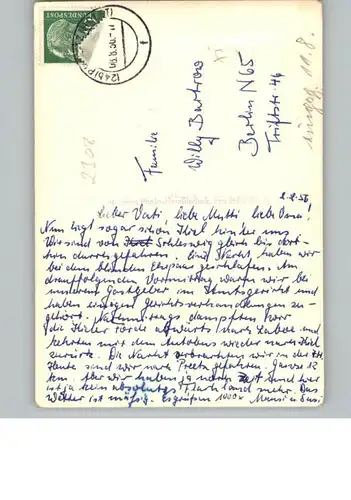 BUNDESPOST
(24b) P
Familie
Willy Bartrow
Berlin N65
Triftstr. 46
eingeg. 11.8.
2308
Lieber Vati, liebe Mutti, liebe Oma!
Nun liegt sogar schon Kiel hinter uns
Wir sind von Schleswig gleich bis dort-
hin durchgefahren. Eine Nacht haben wir
bei dem blinden Ehepaar geschlafen. Am
drauffolgenden Vormittag waren wir bei
unserem Gastgeber im Amtsgericht und
haben einigen Gerichtsverhandlungen zu-
gehört. Nachmittags dampften wir
die Kieler Förde abwärts nach Laboe und
kehrten mit dem Autobus wieder nach Kiel
zurück. Die Nacht verbrachten wir in der
Heute sind wir nach Preetz gefahren. Ganze 12
km. Aber wir haben ja noch Zeit und hier
ist ja kein absolutes Flachland mehr. Das
Wetter ist mäßig. Es grüßen 1000x